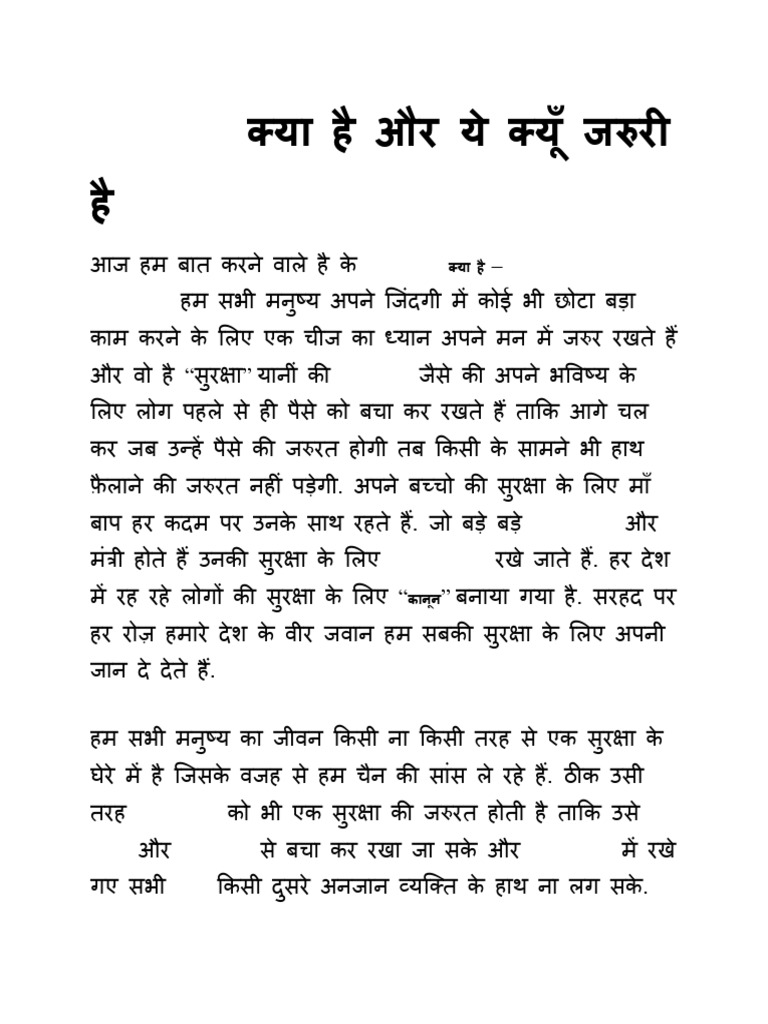 क्या है और ये क्यूँ जरुरी
है
आज हम बात करने वाले है के क्या है –
हम सभी मनुष्य अपने जिंदगी में कोई भी छोटा बड़ा
काम करने के लिए एक चीज का ध्यान अपने मन में जरुर रखते हैं
और वो है “सुरक्षा” यानीं की जैसे की अपने भविष्य के
लिए लोग पहले से ही पैसे को बचा कर रखते हैं ताकि आगे चल
कर जब उन्हें पैसे की जरुरत होगी तब किसी के सामने भी हाथ
फ़ैलाने की जरुरत नहीं पड़ेगी. अपने बच्चो की सुरक्षा के लिए माँ
बाप हर कदम पर उनके साथ रहते हैं. जो बड़े बड़े और
मंत्री होते हैं उनकी सुरक्षा के लिए रखे जाते हैं. हर देश
में रह रहे लोगों की सुरक्षा के लिए “कानून” बनाया गया है. सरहद पर
हर रोज़ हमारे देश के वीर जवान हम सबकी सुरक्षा के लिए अपनी
जान दे देते हैं.
हम सभी मनुष्य का जीवन किसी ना किसी तरह से एक सुरक्षा के
घेरे में है जिसके वजह से हम चैन की सांस ले रहे हैं. ठीक उसी
तरह को भी एक सुरक्षा की जरुरत होती है ताकि उसे
और से बचा कर रखा जा सके और में रखे
गए सभी किसी दुसरे अनजान व्यक्ति के हाथ ना लग सके.